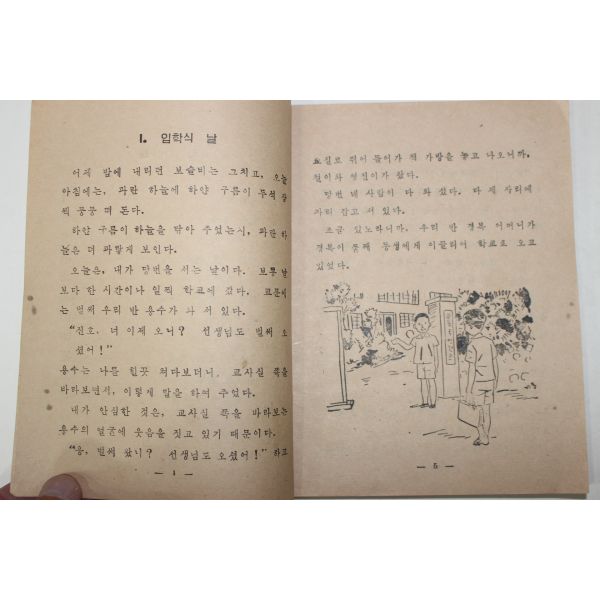 1. 입학식 날
어제 밤에 내리던 보슬비는 그치고, 오늘
아침에는, 파란 하늘에 하얀 구름이 무척 많
떠 돈다.
하얀 구름이 하늘을 닦아 주었는지, 파란 하
늘은 더 파랗게 보인다.
오늘은, 내가 당번을 서는 날이다. 보통 날
보다 한 시간이나 일찍 학교에 갔다. 교문에
는 벌써 우리 반 용수가 와 서 있다.
“진호, 너 이제 오니? 선생님도 벌써 오
셨어!”
용수는 나를 힐끗 쳐다보더니, 교사실 쪽을
바라보면서, 이렇게 말을 하여 주었다.
내가 안심한 것은, 교사실 쪽을 바라보는
용수의 얼굴에 웃음을 짓고 있기 때문이다.
“응, 벌써 왔니? 선생님도 오셨어!” 하고
— 4 —
교실로 뛰어 들어가 책 가방을 놓고 나오니까,
철이와 영진이가 왔다.
당번 네 사람이 다 와 섰다. 다 제 자리에
자리 잡고 서 있다.
조금 있노라니까, 우리 반 경복 어머니가
경복이 동생에게 이끌리어 학교로 오고
있었다.
— 5 —